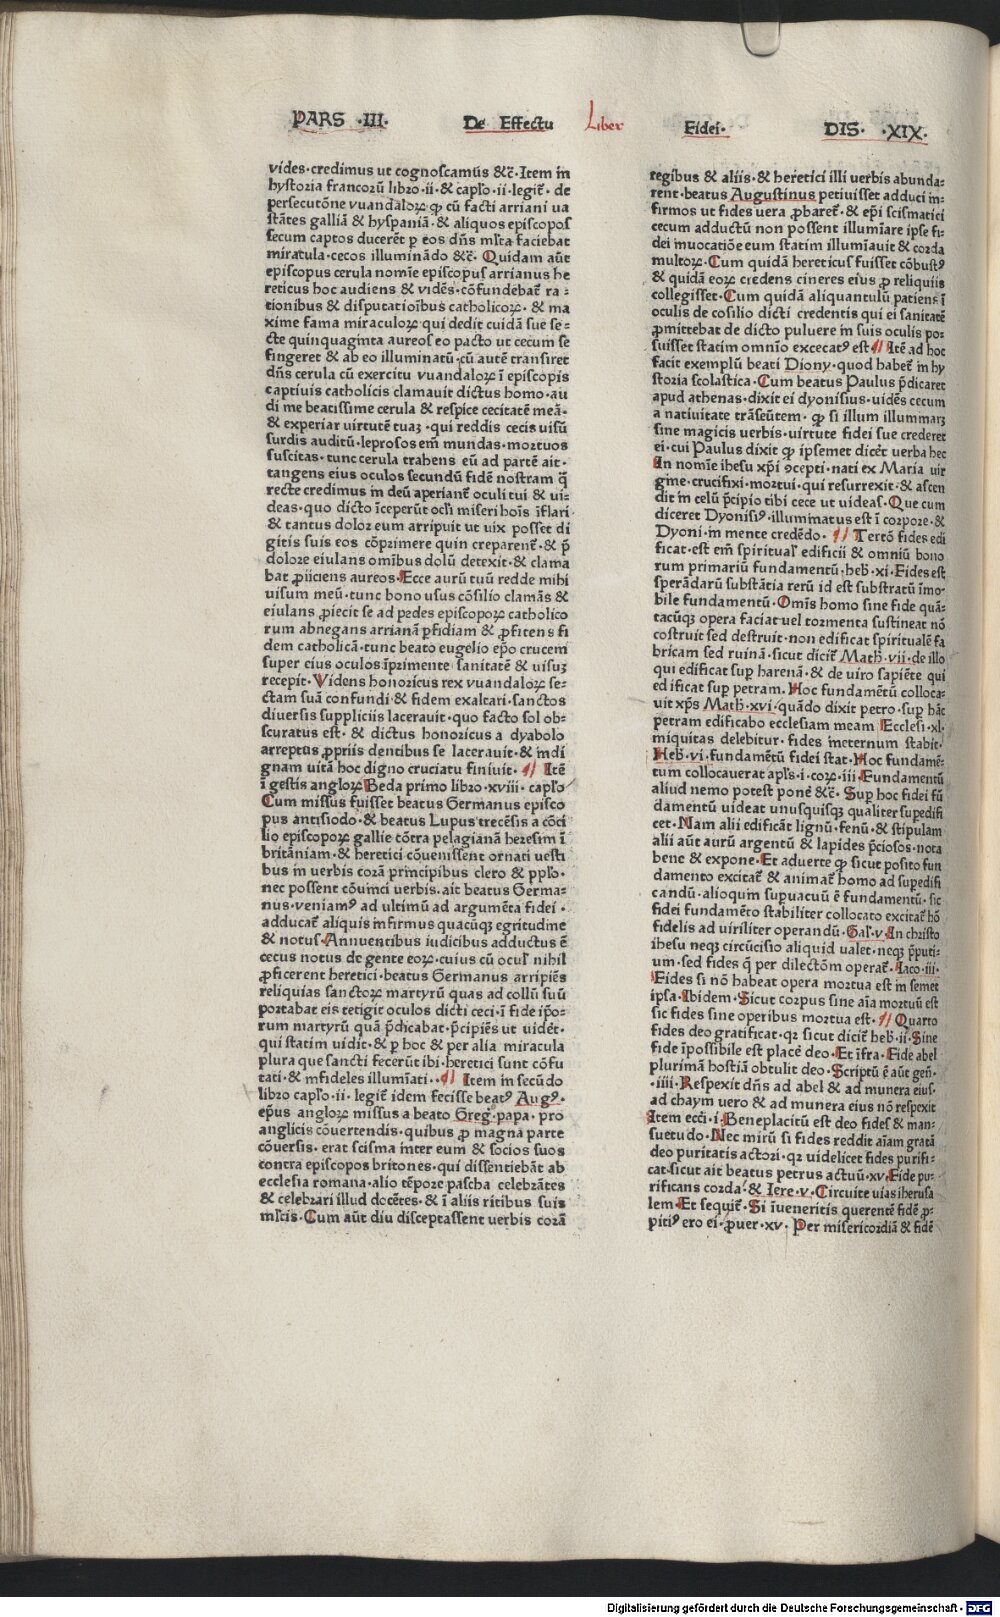 PARS ·III· De Effectu Liber Fidei· DIS· ·XIX·
vides·credimus ut cognoscamus &c̄·Item in
hystoria francorū libro·ii·& capło·ii·legit̄· de
persecutōne vuandaloꝝ ꝙ cū facti arriani ua
stātes galliā & hyspaniā·& aliquos episcopos
secum captos ducerēt ꝑ eos dn̄s mlta faciebat
miracula·cecos illuminādo &c̄· Quidam aūt
episcopus cerula nomīe episcopus arrianus he
reticus hoc audiens & vidēs·cōfundebat̄ ra-
tionibus & disputatioībus catholicoꝝ· & ma
xime fama miraculoꝝ qui dedit cuidā sue se-
cte quinquaginta aureos eo pacto ut cecum se
fingeret & ab eo illuminatū·cū autē transiret
dn̄s cerula cū exercitu vuandaloꝝ ī episcopis
captiuis catholicis clamauit dictus homo·au
di me beatissime cerula & respice cecitatē meā·
& experiar uirtutē tuaꝫ ·qui reddis cecis uisū
surdis auditū·leprosos em̄ mundas·mortuos
suscitas·tunc cerula trahens eū ad partē ait·
tangens eius oculos secundū fidē nostram q̄
recte credimus in deū aperiant̄ oculi tui & ui-
deas·quo dicto īceperūt ocli miseri hoīs īflari·
& tantus dolor eum arripuit ut uix posset di
gitis suis eos cōprimere quin creparent̄·& p̄
dolore eiulans omībus dolū detexit·& clama
bat ꝓiiciens aureos·Ecce aurū tuū redde mihi
uisum meū·tunc bono usus cōsilio clamās &
eiulans ꝓiecit se ad pedes episcopoꝝ catholico
rum abnegans arrianā ꝑfidiam & ꝓfitens fi
dem catholicā·tunc beato eugelio ep̄o crucem
super eius oculos īprimente sanitatē & uisuꝫ
recepit·Videns honoricus rex vuandaloꝝ se-
ctam suā confundi·& fidem exaltari·sanctos
diuersis suppliciis lacerauit·quo facto sol ob-
scuratus est· & dictus honoricus a dyabolo
arreptus ꝓpriis dentibus se lacerauit·& indi
gnam uitā hoc digno cruciatu finiuit· ¶ Itē
ī gestis angloꝝ Beda primo libro·xviii· capło
Cum missus fuisset beatus Germanus episco
pus antisiodo·& beatus Lupus trecēsis a cōci
lio episcopoꝝ gallie cōtra pelagianā heresim ī
britāniam·& heretici cōuenissent ornati uesti
bus in uerbis corā principibus clero & ppło·
nec possent cōuinci uerbis·ait beatus Germa-
nus·veniamꝰ ad ultimū ad argumēta fidei ·
adducat̄ aliquis infirmus quacūqꝫ egritudine
& notus·Annuentibus iudicibus adductus ē
cecus notus de gente eoꝝ·cuius cū ocul nihil
ꝓficerent heretici·beatus Germanus arripiēs
reliquias sanctoꝝ martyrū quas ad collū suū
portabat eis tetigit oculos dicti ceci·ī fide ip̄o-
rum martyrū quā p̄dicabat·p̄cipiēs ut uidēt·
qui statim uidit·& ꝑ hoc & per alia miracula
plura que sancti fecerūt ibi·heretici sunt cōfu
tati·& infideles illumīati··¶ Item in secūdo
libro capło·ii· legit̄ idem fecisse beatꝰ Augꝰ·
ep̄us angloꝝ missus a beato Greg̃ papa· pro
anglicis cōuertendis·quibus ꝓ magna parte
cōuersis· erat scisma inter eum & socios suos
contra episcopos britones·qui dissentiebāt ab
ecclesia romana·alio tēpore pascha celebrātes
& celebrari illud docētes·& ī aliis ritibus suis
mltis·Cum aūt diu disceptassent uerbis corā
regibus & aliis·& heretici illi uerbis abunda-
rent·beatus Augustinus petiuisset adduci in-
firmos ut fides uera ꝓbaret̄·& ep̄i scismatici
cecum adductū non possent illumiare ipse fi-
dei inuocatiōe eum statim illumīauit & corda
multoꝝ·Cum quidā hereticus fuisset cōbustꝰ
& quidā eoꝝ credens cineres eius ꝓ reliquiis
collegisset·Cum quidā aliquantulū patiens ī
oculis de cōsilio dicti credentis qui ei sanitatē
ꝓmittebat de dicto puluere in suis oculis po-
suisset statim omnīo excecatꝰ est ¶ Itē ad hoc
facit exemplū beati Diony·quod habet̄ in hy
storia scolastica·Cum beatus Paulus p̄dicaret
apud athenas·dixit ei dyonisius·uidēs cecum
a natiuitate trāseūtem· ꝙ si illum illuminarꝫ
sine magicis uerbis·uirtute fidei sue crederet
ei·cui Paulus dixit ꝙ ipsemet dicet̄ uerba hec
In nomīe ihesu xp̄i ꝯcepti·nati ex Maria uir
gine·crucifixi·mortui·qui resurrexit·& ascen
dit in celū p̄cipio tibi cece ut uideas·Que cum
diceret Dyonisiꝰ·illuminatus est ī corpore·&
Dyoni·in mente credēdo· ¶ Tertō fides edi
ficat·est em̄ spiritual edificii & omniū bono
rum primariū fundamentū·heb·xi·Fides est
sperādarū substātia rerū id est substratū imo-
bile fundamentū·Omīs homo sine fide quā-
tacūqꝫ opera faciat·uel tormenta sustineat nō
cōstruit sed destruit·non edificat spiritualē fa
bricam sed ruinā·sicut dicit̄ Math̄·vii·de illo
qui edificat suꝑ harenā·& de uiro sapiēte qui
edificat suꝑ petram·Hoc fundamētū colloca-
uit xp̄s Math̄·xvi·quādo dixit petro·suꝑ hāc
petram edificabo ecclesiam meam Ecclesi·xl·
iniquitas delebitur·fides ineternum stabit·
Heb̄·vi·fundamētū fidei stat·Hoc fundamē-
tum collocauerat apls·i·coꝝ·iii·Fundamentū
aliud nemo potest ponē &c̄· Suꝑ hoc fidei fū
damentū uideat unusquisqꝫ qualiter suꝑedifi
cet·Nam alii edificāt lignū·fenū·& stipulam
alii aūt aurū argentū & lapides p̄ciosos·nota
bene & expone·Et aduerte ꝙ sicut posito fun
damento excitat̄ & animat̄ homo ad suꝑedifi
candū·alioqum suꝑuacuū ē fundamentū· sic
fidei fundamēto stabiliter collocato excitat̄ hō
fidelis ad uiriliter operandū·Gal·v·In christo
ihesu neqꝫ circūcisio aliquid ualet·neqꝫ p̄puti-
um·sed fides q̄ per dilectōm operat̄·Iaco·iii·
Fides si nō habeat opera mortua est in semet
ipsa·Ibidem·Sicut corpus sine aīa mortuū est
sic fides sine operibus mortua est· ¶ Quarto
fides deo gratificat·qꝛ sicut dicit̄ heb̄·ii·Sine
fide īpossibile est placē deo·Et īfra·Fide abel
plurimā hostiā obtulit deo·Scriptū ē aūt gen̄·
·iiii·Respexit dn̄s ad abel & ad munera eius·
ad chaym uero & ad munera eius nō respexit
Item ecci·i·Beneplacitū est deo fides & man-
suetudo·Nec mirū si fides reddit aīam gratā
deo puritatis actori·qꝛ uidelicet fides purifi-
cat·sicut ait beatus petrus actuū·xv·Fide pu-
rificans corda·& Iere·v·Circuite uias iherusa
lem·Et sequit̄·Si īueneritis querentē fidē ꝓ-
pitiꝰ ero ei·ꝓuer·xv· Per misericordiā & fidē
Digitalisierung gefördert durch die Deutsche Forschungsgemeinschaft - DFG